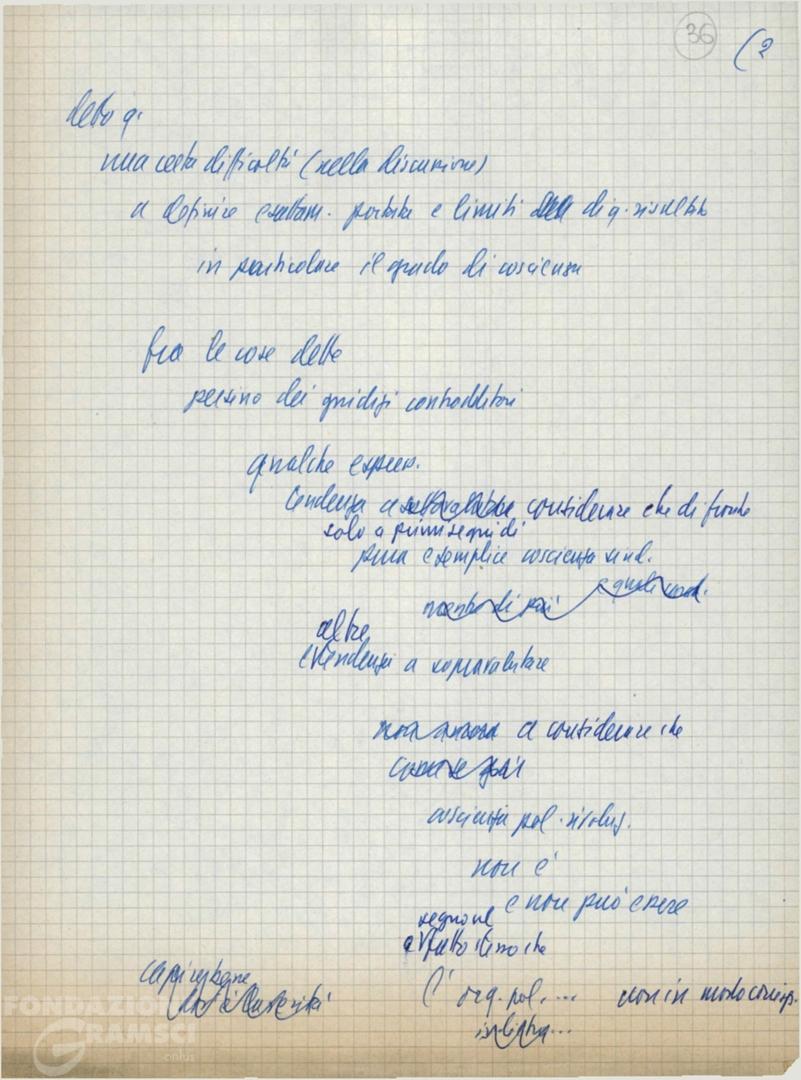 36 (2
detto q.
una certa difficoltà (nella discussione)
a definire esattam. portata e limiti di q. risultato
in particolare il grado di coscienza
fra le cose dette
persino dei giudizi contraddittori
qualche espress.
tendenza a sottovalutare considerare che di fronte
solo a primi segni di
pura e semplice coscienza sind.
altre
tendenza a sopravalutare
non ancora a considerare che
come se già
coscienza pol. rivoluz.
non è
e non può essere
segno ne
fatto stesso che
capir bene
l'org. pol. ... non in modo corrisp.
FONDAZIONE
GRAMSCI
onlus